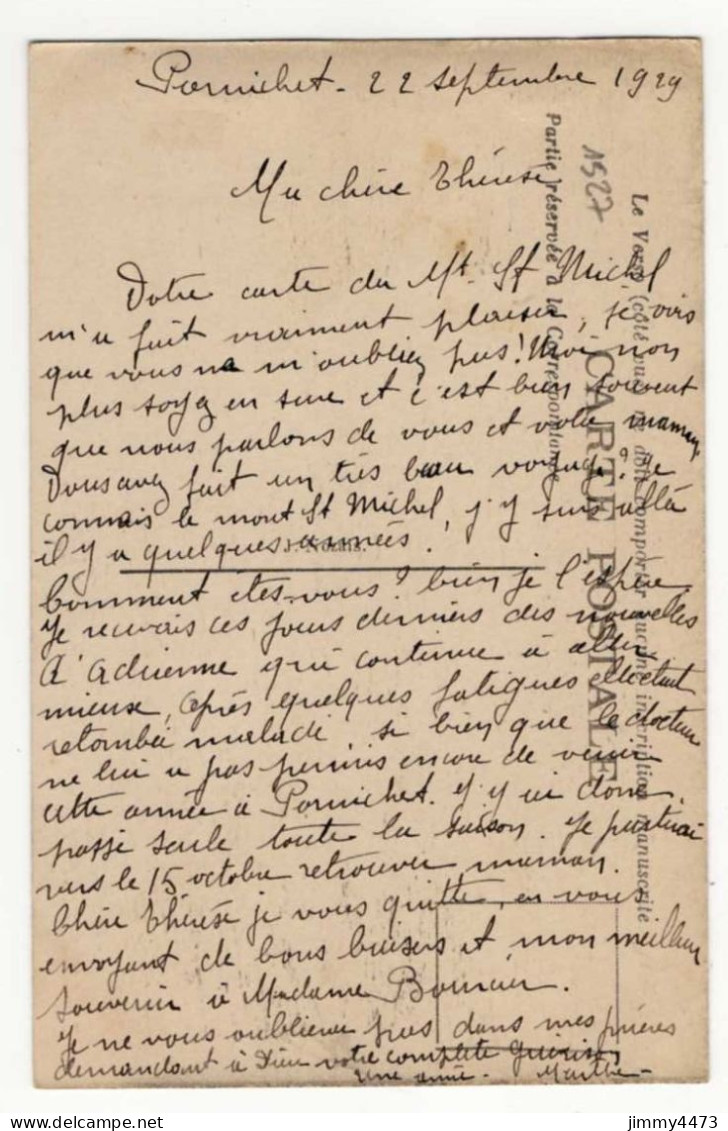 Pornichet - 22 Septembre 1929
Ma chère Thérèse
Votre carte du Mt. St Michel
m'a fait vraiment plaisir, je vois
que vous ne m'oubliez pas! Moi non
plus soyez en sure et c'est bien souvent
que nous parlons de vous et votre maman
Vous avez fait un très beau voyage? Je
connais le mont St Michel, j'y suis allée
il y a quelques années.
Comment êtes-vous? bien je l'espère.
Je recevais ces jours derniers des nouvelles
d'Adrienne qui continue à aller
mieux, après quelques fatigues elle était
retombée malade si bien que le docteur
ne lui a pas permis encore de venir
cette année à Pornichet. J'y ai donc
passé seule toute la saison. Je partirai
vers le 15 octobre retrouver maman.
Chère Thérèse je vous quitte en vous
envoyant de bons baisers et mon meilleur
souvenir à Madame
Je ne vous oublierai pas dans mes prières
demandant à Dieu votre complète guérison
Une amie. Marthe
1527
CARTE POSTALE
Partie réservée à la Correspondance
Le Verso (côté vue) ne doit comporter aucune inscription manuscrite
jimmy4473